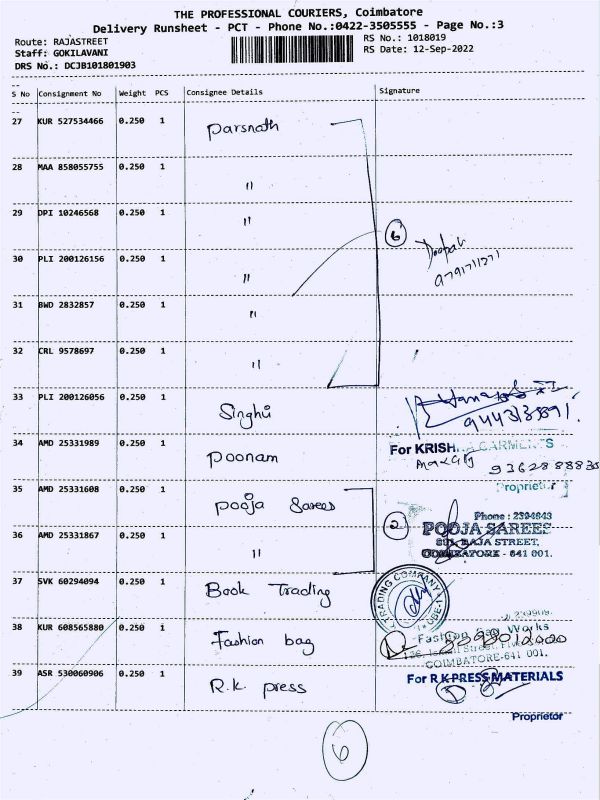 THE PROFESSIONAL COURIERS, Coimbatore
Delivery Runsheet - PCT - Phone No.:0422-3505555 - Page No.:3
Route: RAJASTREET
RS No.: 1018019
Staff: GOKILAVANI
RS Date: 12-Sep-2022
DRS No.: DCJB101801903
S No Consignment No Weight PCS Consignee Details Signature
27 KUR 527534466 0.250 1 Parsnath
28 MAA 858055755 0.250 1 "
29 DPI 10246568 0.250 1 "
6
Deepak
9791711271
30 PLI 200126156 0.250 1 "
31 BWD 2832857 0.250 1 "
32 CRL 9578697 0.250 1 "
33 PLI 200126056 0.250 1 Singhvi
34 AMD 25331989 0.250 1 Poonam
For KRISHNA GARMENTS
Proprietor
35 AMD 25331608 0.250 1 Pooja Sarees
2
Phone : 2394843
POOJA SAREES
RAJA STREET,
COIMBATORE - 641 001.
36 AMD 25331867 0.250 1 "
37 SVK 60294094 0.250 1 Book Trading
TRADING COMPANY
CBE-1
38 KUR 608565880 0.250 1 Fashion bag
Fashion Bag Works
COIMBATORE-641 001.
39 ASR 530060906 0.250 1 R.k. press
For R K PRESS MATERIALS
Proprietor
6